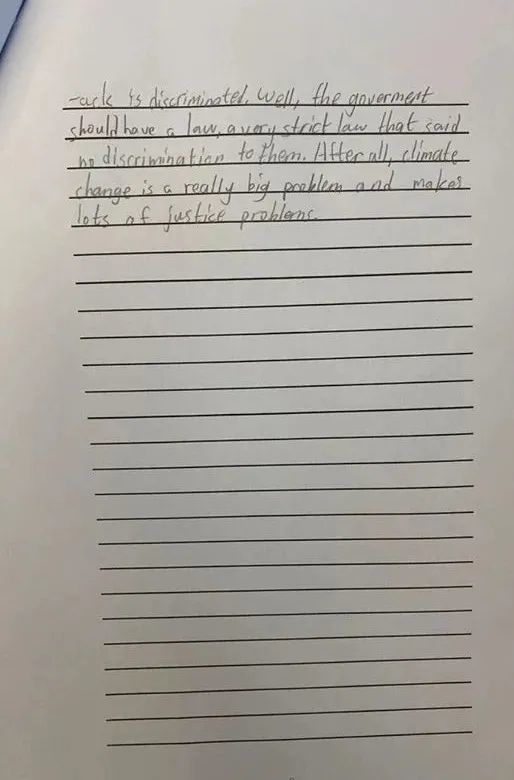 is discriminated. Well, the goverment
should have a law, a very strict law that said
no discrimination to them. After all, climate
change is a really big problem and makes
lots of justice problems.